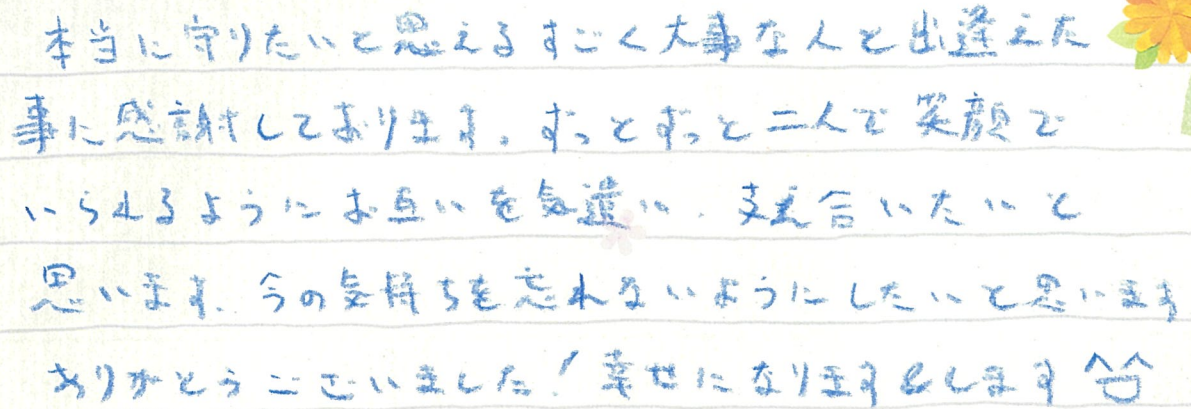 本当に守りたいと思えるすごく大事な人と出逢えた
事に感謝しております。ずっとずっと二人で笑顔で
いられるようにお互いを気遣い、支え合いたいと
思います。今の気持ちを忘れないようにしたいと思います
ありがとうございました！幸せになります&します^^